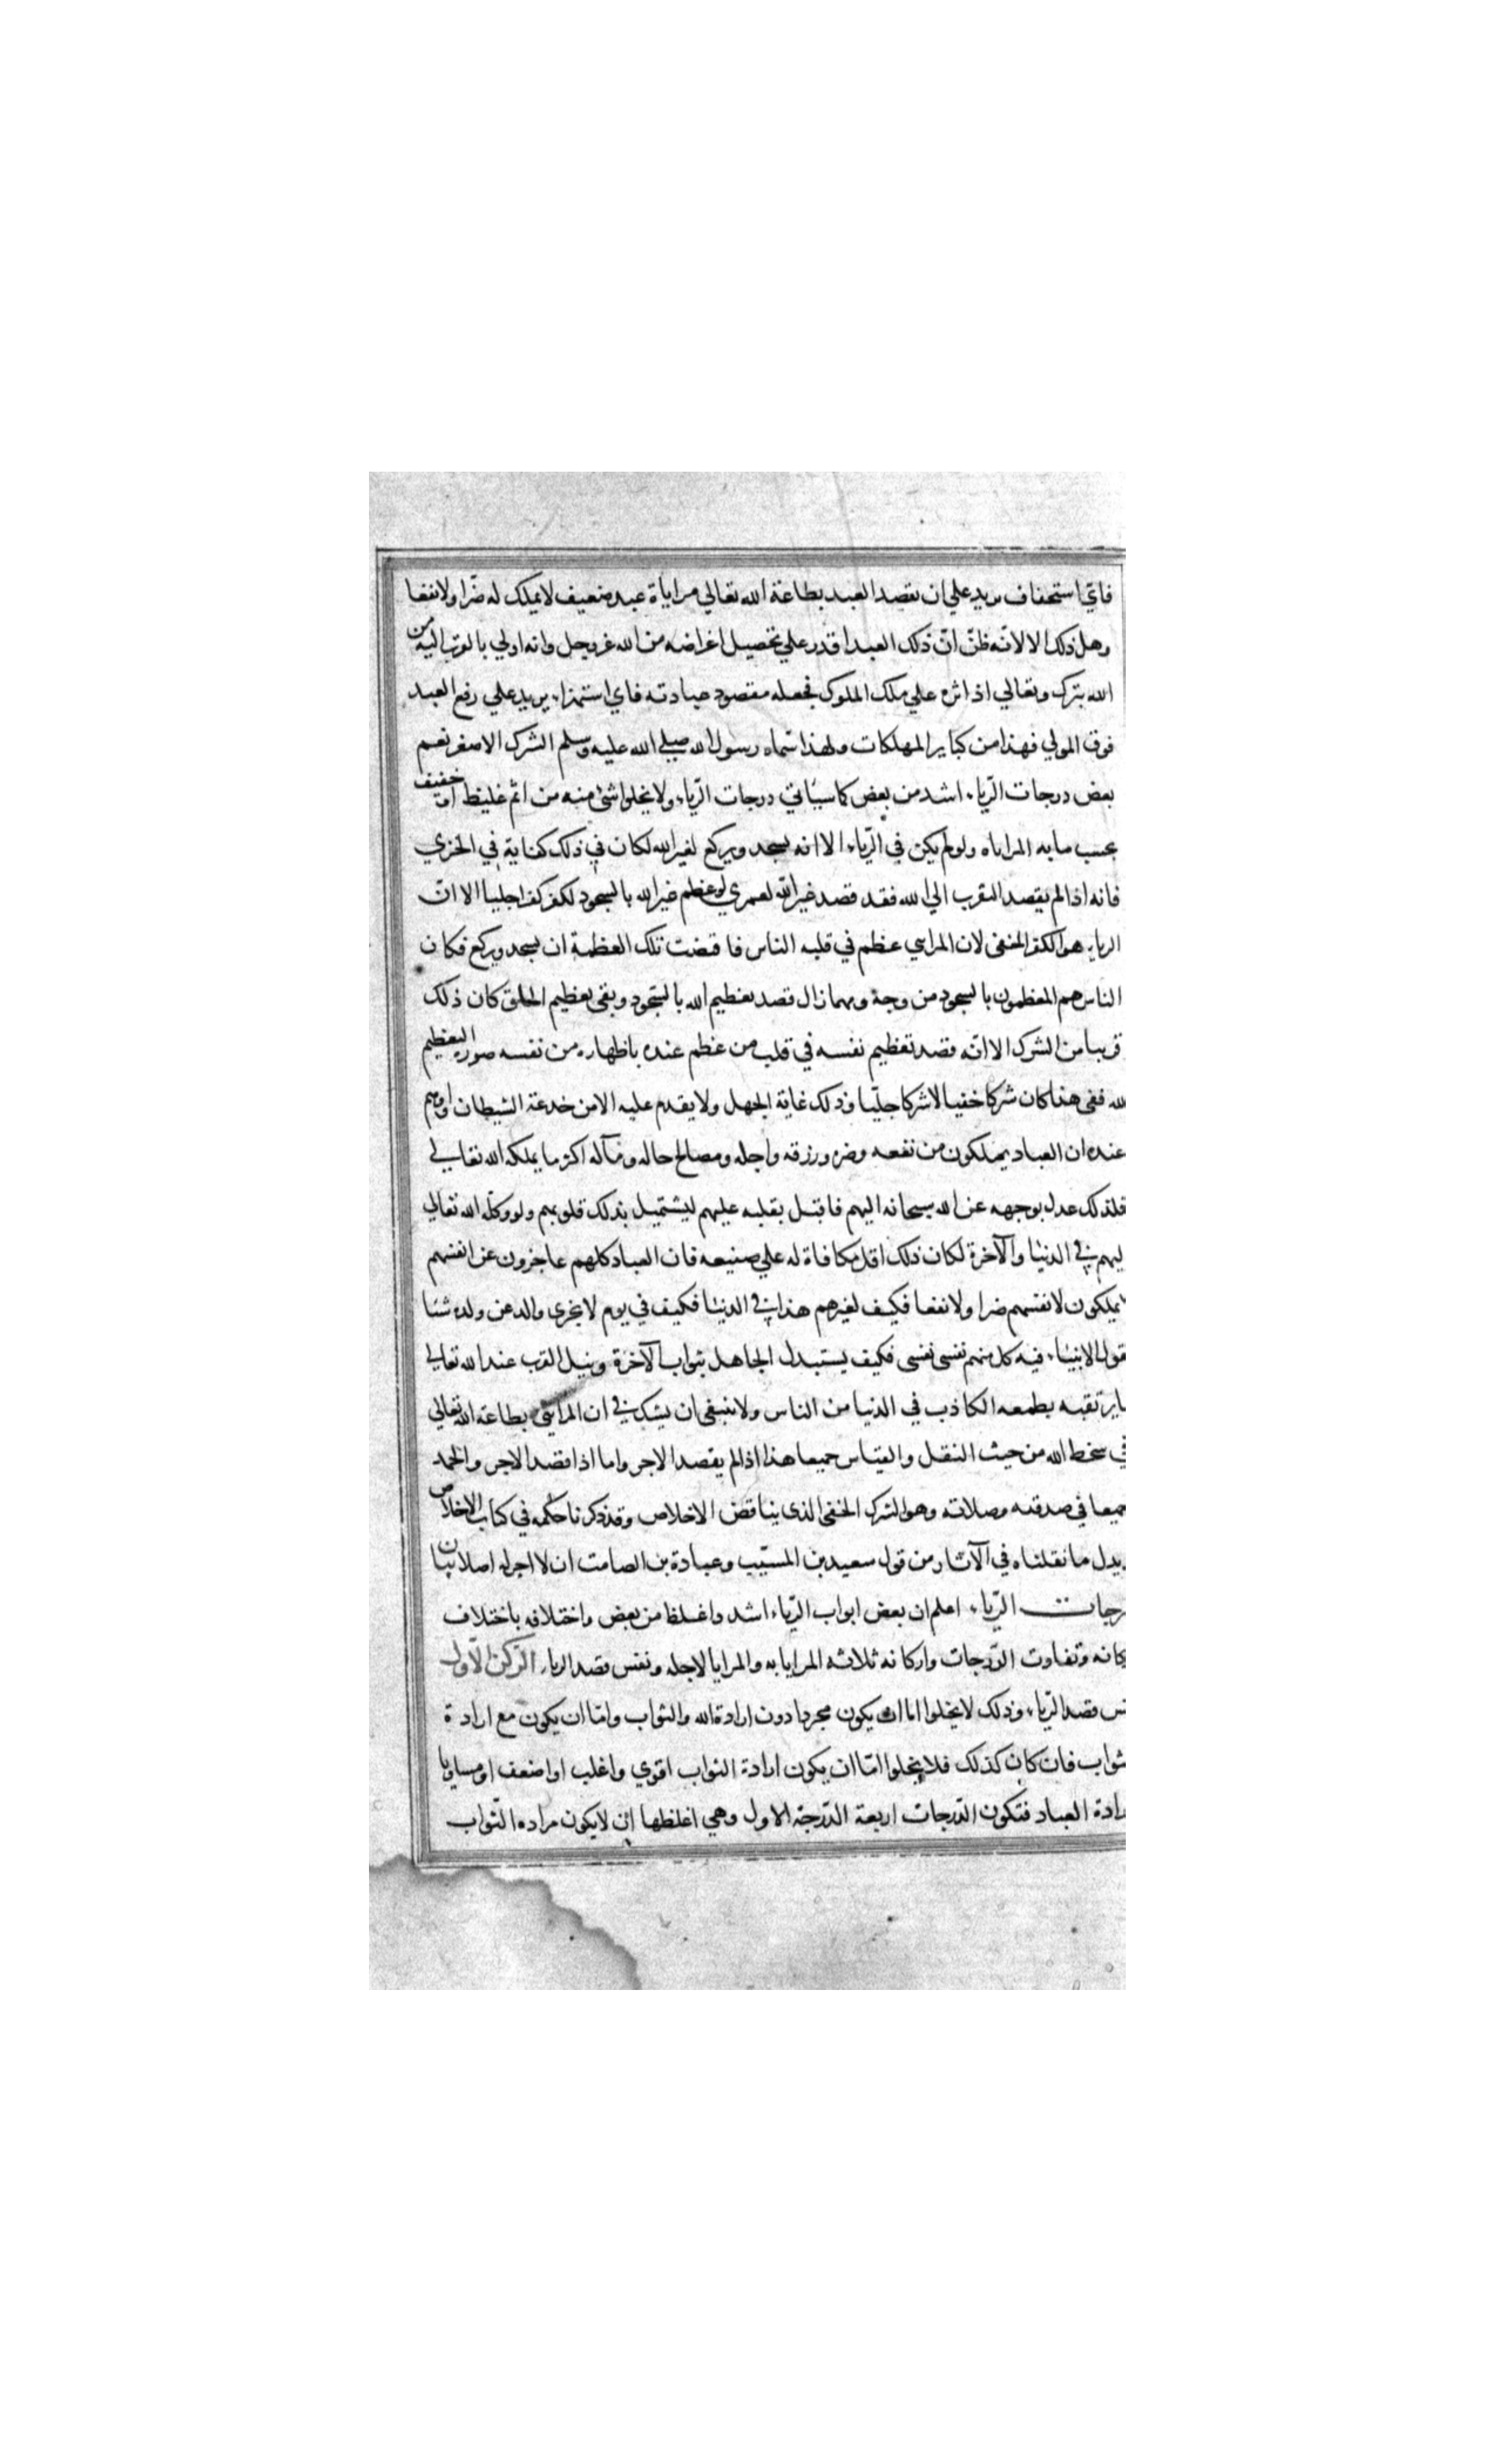 فاي استحقاف يريد علي ان يقصد العبد بطاعة الله تعالي مراياة عبد ضعيف لا يملك له ضرّا ولا نفعا
وهل ذلك الا لانّه ظنّ انّ ذلك العبد اقدر علي تحصيل اغراضه من الله عزوجل وانه اولي بالتقرب اليه من
الله تبرك وتعالي اذ اثره علي ملك الملوك فجعله مقصود عبادته فاي استهزاء يريد علي رفع العبد
فوق المولي فهذا من كباير المهلكات ولهذا سّماه رسول الله صلي الله عليه وسلم الشرك الاصغر نعم
بعض درجات الرّياء اشد من بعض كما سيأتي درجات الرّياء ولا يخلوا شئ منه من اثم غليظ او خفيف
بحسب ما به المراياه ولو لم يكن في الرّياء الا انه يسجد ويركع لغير الله لكان في ذلك كفاية في الخزي
فانه اذا لم يقصد التقرب الي الله فقد قصد غير الله لعمري لو عظم غير الله بالسجود لكفر كفرا جليا الا انّ
الرياء هو الكفر الخفى لان المرايي عظم في قلبه الناس فاقتضت تلك العظمة ان يسجد ويركع فكان
الناس هم المعظمون بالسجود من وجهٔ ومهما زال قصد تعظيم الله بالسّجود وبقى تعظيم الخلق كان ذلك
قريبا من الشرك الا انّه قصد تعظيم نفسه في قلب من عظم عنده باظهاره من نفسه صورة التعظيم
لله ففى هذا كان شركا خفيا لا شركا جليّا وذلك غاية الجهل ولا يقدم عليه الا من خدعة الشيطان واوهم
عنده ان العباد يملكون من نفعه وضره ورزقه واجله ومصالح حاله ومآله اكثر ما يملكه الله تعالي
فلذلك عدل بوجهه عن الله سبحانه اليهم فاقبل بقلبه عليهم ليستميل بذلك قلوبهم ولو وكلّه الله تعالي
ليهم في الدنيا والآخرة لكان ذلك اقل مكافاة له علي صنيعه فان العباد كلهم عاجزون عن انفسهم
لا يملكون لانفسهم ضرا ولا نفعا فكيف لغيرهم هذا في الدنيا فكيف في يوم لا يجزى والد عن ولده شئا
قول الانبياء فيه كل منهم نفسى نفسى فكيف يستبدل الجاهل بثواب الآخرة ونيل القرب عند الله تعالي
ا يرتقبه بطمعه الكاذب في الدنيا من الناس ولا ينبغى ان يشك في ان المرايئ بطاعة الله تعالي
في سخط الله من حيث النقل والقياس جميعا هذا اذا لم يقصد الاجر واما اذا قصد الاجر والحمد
جميعا في صدقته وصلاته وهو الشرك الخفى الذى يناقض الاخلاص وقد ذكرنا حكمه في كتاب الاخلاص
يدل ما نقلناه في الآثار من قول سعيد بن المسيّب وعبادة بن الصامت ان لا اجر له اصلا بيان
رجات الرّياء اعلم ان بعض ابواب الرّياء اشد واغلظ من بعض واختلافه باختلاف
كانه وتفاوت الدّرجات واركانه ثلاثه المرايا به والمرايا لاجله ونفس قصد الرياء الرّكن الاّول
نس قصد الرّياء وذلك لا يخلوا اما ان يكون مجردا دون ارادة الله والثواب وامّا ان يكون مع ارادة
ثواب فان كان كذلك فلا يخلوا امّا ان يكون ارادة الثواب اقوي واغلب او اضعف او مساويا
رادة العباد فتكون الدّرجات اربعة الدّرجة الاول وهي اغلظها ان لا يكون مراده الثّواب